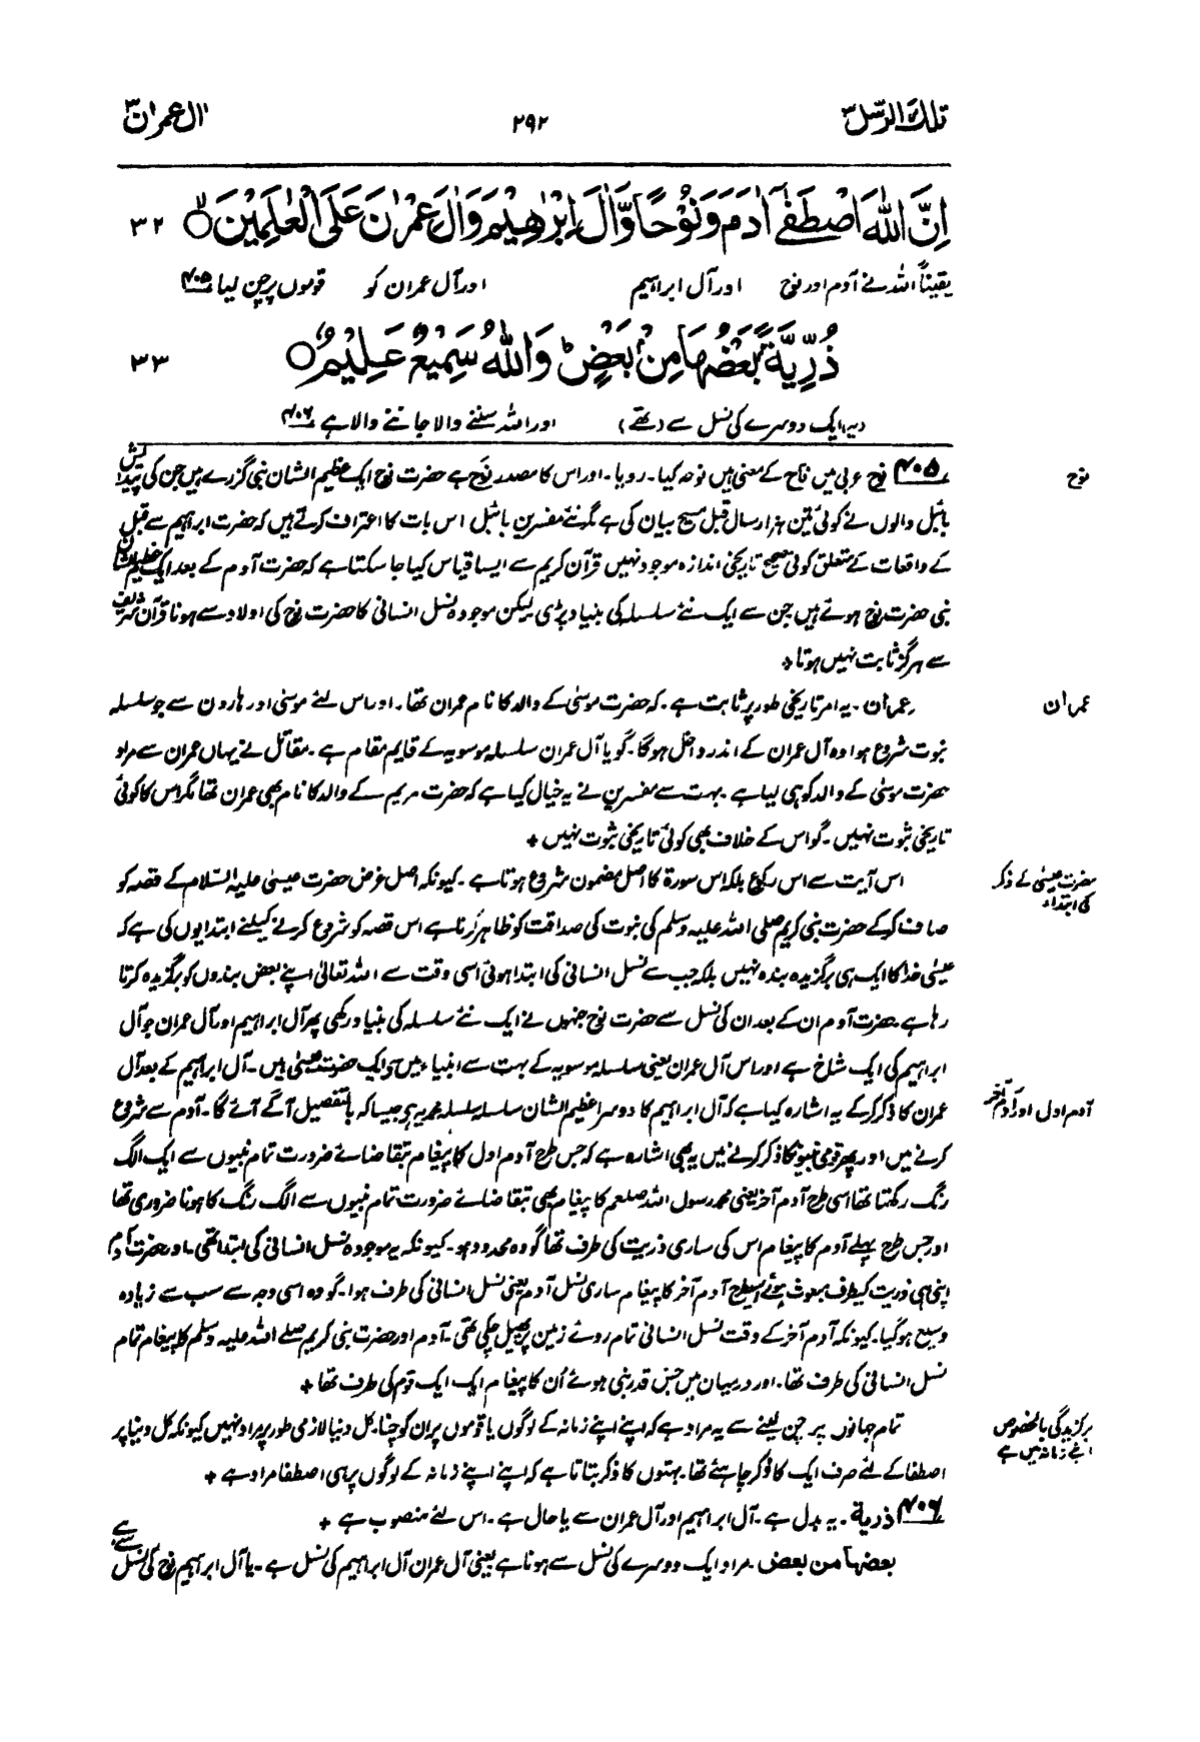 تلك الرسل ۳
۲۹۲
اٰل عمرٰن ۳
اِنَّ اللّٰهَ اصْطَفٰۤى اٰدَمَ وَ نُوْحًا وَّ اٰلَ اِبْرٰهِيْمَ وَ اٰلَ عِمْرٰنَ عَلَى الْعٰلَمِيْنَ ۙ ۳۲
یقیناً اللہ نے آدم اور نوح اور آل ابراہیم اور آل عمران کو قوموں پر چن لیا ۴۰۵
ذُرِّيَّةًۢ بَعْضُهَا مِنْۢ بَعْضٍ ؕ وَ اللّٰهُ سَمِيْعٌ عَلِيْمٌ ۚ ۳۳
(یہ) ایک دوسرے کی نسل سے (تھے) اور اللہ سننے والا جاننے والا ہے ۴۰۶
نوح
۴۰۵ نوح عربی میں ناح کے معنی ہیں نوحہ کیا۔ رویا۔ اور اس کا مصدر نَوح ہے حضرت نوح ایک عظیم الشان نبی گزرے ہیں جن کی پیدائش
بائبل والوں نے کوئی تین ہزار سال قبل مسیح بیان کی ہے مگر نئے مفسرین بائبل اس بات کا اعتراف کرتے ہیں کہ حضرت ابراہیم سے قبل
کے واقعات کے متعلق کوئی صحیح تاریخی اندازہ موجود نہیں قرآن کریم سے ایسا قیاس کیا جا سکتا ہے کہ حضرت آدم کے بعد ایک عظیم الشان
نبی حضرت نوح ہوئے ہیں جن سے ایک نئے سلسلہ کی بنیاد پڑی لیکن موجودہ نسل انسانی کا حضرت نوح کی اولاد سے ہونا قرآن شریف
سے ہرگز ثابت نہیں ہوتا +
عمران
عمران۔ یہ امر تاریخی طور پر ثابت ہے۔ کہ حضرت موسیٰ کے والد کا نام عمران تھا۔ اور اس لئے موسیٰ اور ہارون سے جو سلسلہ
نبوت شروع ہوا وہ آل عمران کے اندر داخل ہوگا۔ گویا آل عمران سلسلہ موسویہ کے قایم مقام ہے۔ مقاتل نے یہاں عمران سے مراد
حضرت موسیٰ کے والد کو ہی لیا ہے۔ بہت سے مفسرین نے یہ خیال کیا ہے کہ حضرت مریم کے والد کا نام بھی عمران تھا مگر اس کا کوئی
تاریخی ثبوت نہیں۔ گو اس کے خلاف بھی کوئی تاریخی ثبوت نہیں +
حضرت عیسیٰ کے ذکر
کی ابتداء
اس آیت سے اس رکوع بلکہ اس سورۃ کا اصل مضمون شروع ہوتا ہے۔ کیونکہ اصل غرض حضرت عیسیٰ علیہ السلام کے قصہ کو
صاف کر کے حضرت نبی کریم صلی اللہ علیہ وسلم کی نبوت کی صداقت کو ظاہر کرنا ہے اس قصہ کو شروع کرنے کیلئے ابتدا یوں کی ہے کہ
عیسیٰ خدا کا ایک ہی برگزیدہ بندہ نہیں بلکہ جب سے نسل انسانی کی ابتدا ہوئی اسی وقت سے اللہ تعالیٰ اپنے بعض بندوں کو برگزیدہ کرتا
رہا ہے۔ حضرت آدم ان کے بعد ان کی نسل سے حضرت نوح جنہوں نے ایک نئے سلسلہ کی بنیاد رکھی پھر آل ابراہیم اور آل عمران جو آل
ابراہیم کی ایک شاخ ہے اور اس آل عمران یعنی سلسلہ موسویہ کے بہت سے انبیاء میں سے ایک حضرت عیسیٰ ہیں۔ آل ابراہیم کے بعد آل
آدم اول اور آدم آخر
عمران کا ذکر کر کے یہ اشارہ کیا ہے کہ آل ابراہیم کا دوسرا عظیم الشان سلسلہ سلسلہ محمدیہ ہے جیسا کہ بالتفصیل آگے آئے گا۔ آدم سے شروع
کرنے میں اور پھر قومی نبیوں کا ذکر کرنے میں یہ بھی اشارہ ہے کہ جس طرح آدم اول کا پیغام بتقاضائے ضرورت تمام نبیوں سے ایک الگ
رنگ رکھتا تھا اسی طرح آدم آخر یعنی محمد رسول اللہ صلعم کا پیغام بھی بتقاضائے ضرورت تمام نبیوں سے الگ رنگ کا ہونا ضروری تھا
اور جس طرح پہلے آدم کا پیغام اس کی ساری ذریت کی طرف تھا گو وہ محدود ہو۔ کیونکہ یہ موجودہ نسل انسانی کی ابتدا تھی۔ اور حضرت آدم
اپنی ہی ذریت کیطرف مبعوث ہوئے اسیطرح آدم آخر کا پیغام ساری نسل آدم یعنی نسل انسانی کی طرف ہوا۔ گو وہ اسی وجہ سے سب سے زیادہ
وسیع ہو گیا۔ کیونکہ آدم آخر کے وقت نسل انسانی تمام روئے زمین پر پھیل چکی تھی۔ آدم اور حضرت نبی کریم صلے اللہ علیہ وسلم کا پیغام تمام
نسل انسانی کی طرف تھا۔ اور درمیان میں جس قدر نبی ہوئے اُن کا پیغام ایک ایک قوم کی طرف تھا +
برگزیدگی بالخصوص
اپنے زمانہ میں ہے
تمام جہانوں پر چن لینے سے یہ مراد ہے کہ اپنے اپنے زمانہ کے لوگوں یا قوموں پر ان کو چنا۔ کل دنیا لازمی طور پر مراد نہیں کیونکہ کل دنیا پر
اصطفا کے لئے صرف ایک کا ذکر چاہئے تھا۔ بہتوں کا ذکر بتاتا ہے کہ اپنے اپنے زمانہ کے لوگوں پر ہی اصطفا مراد ہے +
۴۰۶ ذریة۔ یہ بدل ہے۔ آل ابراہیم اور آل عمران سے یا حال ہے۔ اس لئے منصوب ہے +
بعضها من بعض۔ مراد ایک دوسرے کی نسل سے ہونا ہے یعنی آل عمران آل ابراہیم کی نسل ہے۔ یا آل ابراہیم نوح کی نسل سے ہے